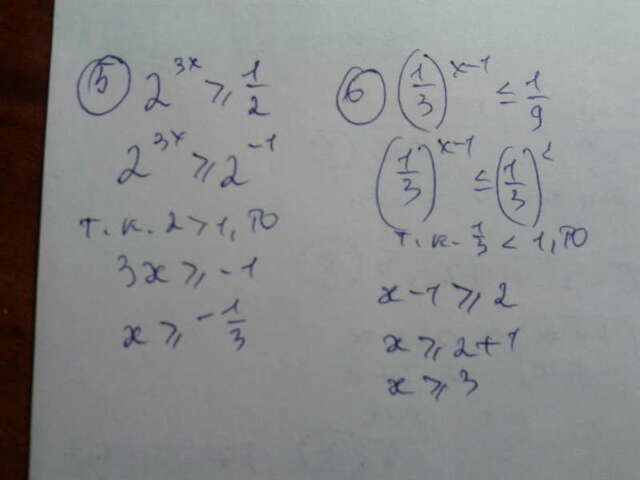 5 2^{3x} ⩾ 1/2
2^{3x} ⩾ 2^{-1}
т.к. 2 > 1, то
3x ⩾ -1
x ⩾ -1/3
6 (1/3)^{x-1} ≤ 1/9
(1/3)^{x-1} ≤ (1/3)^2
т.к. 1/3 < 1, то
x-1 ⩾ 2
x ⩾ 2+1
x ⩾ 3